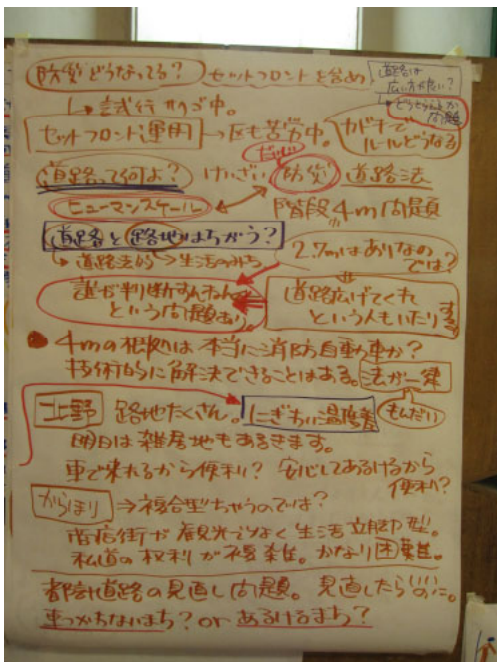 防災どうなってる? セットフロントを含め
道路は
広い方が良い?
どうせつえるか
問題
↳試行サク中。
セットフロント運用→区も苦労中。
カドチで
ルールどうなる
だっし
道路って何よ? けいざい 防災 道路法
ヒューマンスケール
階段4m問題
道路と路地はちがう?
↳道路法的→生活のみち
2.7mはありなの
では?
誰が判断すんねん
という問題あり。
道路広げてくれ
という人もいたりする
●4mの根拠は本当に消防自動車か?
技術的に解決できることはある。法が一律
もんだい
北野 路地たくさん。にぎわいに温度差
明日は雑居地もあるきます。
車で来れるから便利? 安心してあるけるから
便利?
からほり⇒複合型ちゃうのでは?
商店街が観光でなく生活立脚型。
私道の権利が複雑。かなり困難。
都計道路の見直し問題。見直したらいいのに。
車つかわないまち? or あるけるまち?